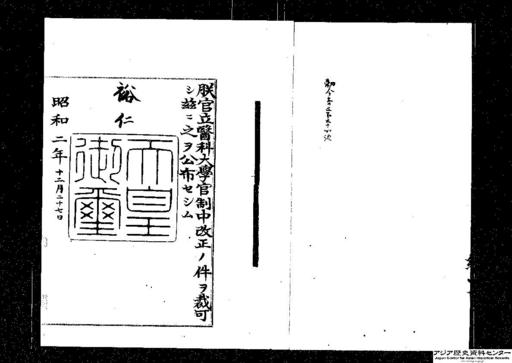 朕官立醫科大學官制中改正ノ件ヲ裁可
シ茲ニ之ヲ公布セシム
裕仁
天皇御璽
昭和二年十二月二十七日
アジア歴史資料センター
Japan Center for Asian Historical Records